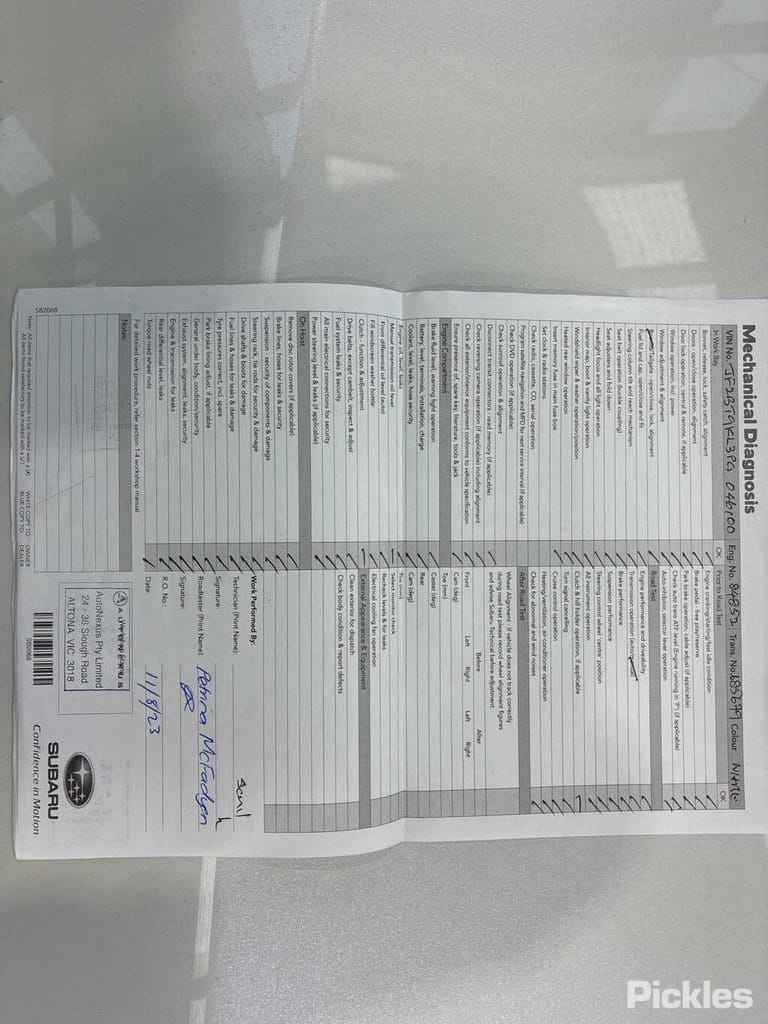 Mechanical Diagnosis
VIN No. Eng. No. 84852 Trans. No. Colour White
In Work Bay OK
Bonnet, release, lock, safety catch, alignment
Doors - open/close operation, alignment
Door lock operation, central & remote, if applicable
Window operation, incl. power
Window adjustment & alignment
Tailgate - open/close, lock, alignment
Fuel lid and cap, open/close and fit
Steering column tilt and reach mechanism
Seat belt operation (buckle coupling)
Seat adjusters and fold down
Headlight focus and all light operation
Interior map, boot & vanity light operation
Windshield water & washer operation/position
Heated rear window operation
Insert memory fuse in main fuse box
Set clock & radio stations
Check radio, cassette, CD, aerial operation
Program satellite navigation and MFD for next service interval (if applicable)
Check DVD operation (if applicable)
Check sunroof operation & alignment
Disconnect transit connectors - read memory (if applicable)
Check reversing camera operation (if applicable) including alignment
Check all exterior/interior equipment conforms to vehicle specification
Ensure presence of, spare key, literature, tools & jack
Engine Compartment
Brake fluid level, warning light operation
Battery, level, terminals, installation, charge
Coolant, level, leaks, hose security
Engine oil, level, leaks
Manual transmission oil level
Front differential oil level (Auto)
Fill windscreen washer bottle
Clutch - function & adjustment
Drive belts, except cambelt, inspect & adjust
Fuel system leaks & security
All main electrical connections for security
Power steering level & leaks (if applicable)
On Hoist
Remove disc rotor covers (if applicable)
Brake lines, hoses for leaks & security
Suspension - security of components & damage
Steering rack, tie rods for security & damage
Drive shafts & boots for damage
Fuel lines & hoses for leaks & damage
Tyre pressures correct, incl. spare
Park brake lining adjust, if applicable
General under body, condition/security
Exhaust system, alignment, leaks, security
Engine & transmission for leaks
Rear differential level, leaks
Torque road wheel nuts
For detailed work procedure, refer section 1-4 workshop manual
Notes:
Prior to Road Test OK
Engine cranking/starting/fast idle condition
Brake pedal - free play/reserve
Park brake operation, cable adjust (if applicable)
Check auto trans ATF level (Engine running in 'P') (if applicable)
Auto-inhibitor, selector lever operation
Road Test
Engine performance and driveability
Transmission operation (auto/manual)
Brake performance
Suspension performance
Steering control wheel 'centre' position
All instrument operation
Clutch & hill holder operation, if applicable
Turn signal cancelling
Cruise control operation
Heating/ventilation, air-conditioner operation
Check for abnormal and wind noises
After Road Test
Wheel Alignment - If vehicle does not track correctly
during road test please record wheel alignment figures
and advise Subaru Technical before adjustment.
Before After
Front Left Right Left Right
Cam (deg)
Toe (mm)
Caster (deg)
Rear
Cam (deg)
Toe (mm)
Select monitor check
Recheck levels & for leaks
Electrical cooling fan operation
External Appearance & Equipment
Clean exterior for dispatch
Check body condition & report defects
Work Performed By:
Technician (Print Name):
Signature:
Roadtester (Print Name): Petrina McFadyen
Signature:
R.O. No.:
Date: 11/8/23
AUTONEXUS
AutoNexus Pty Limited
24 - 36 Slough Road
ALTONA VIC 3018
SUBARU
Confidence in Motion
SB2068
SB2068
WHITE COPY TO: OWNER
BLUE COPY TO: DEALER
Pickles